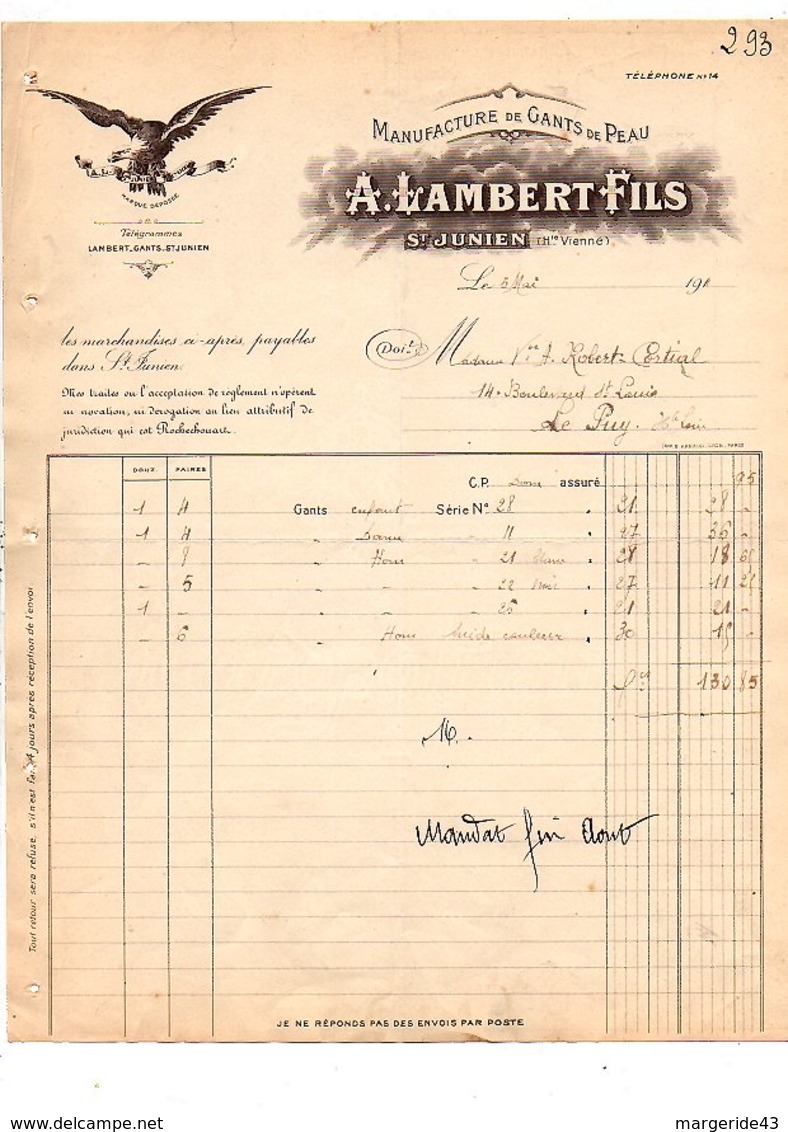 293
TÉLÉPHONE Nº 14
MANUFACTURE DE GANTS DE PEAU
A. LAMBERT FILS
ST JUNIEN (Hte Vienne)
MARQUE DÉPOSÉE
Télégrammes
LAMBERT_GANTS_ST JUNIEN
Le 5 Mai 191
les marchandises ci-après, payables
dans St Junien.
Mes traites ou l'acceptation de règlement n'opèrent
ni novation, ni dérogation au lien attributif de
juridiction qui est Rochechouart.
Doit
Madame Vve A. Robert-Cortial
14. Boulevard St Louis
Le Puy. Hte Loire
DOUZ. PAIRES
C.P. assuré 95
1 4 Gants enfant Série No 28 " 21 28 -
1 4 " Dame " 11 " 27 36 -
- 8 " Hom " 21 " 28 18 65
- 5 " - " 22 " 27 11 25
1 - " " 25 " 21 21 -
- 6 " Hom Suède couleur " 30 15 -
130 85
M.
Mandat fin Aout
Tout retour sera refusé, s'il n'est fait 4 jours après réception de l'envoi
JE NE RÉPONDS PAS DES ENVOIS PAR POSTE
margeride43